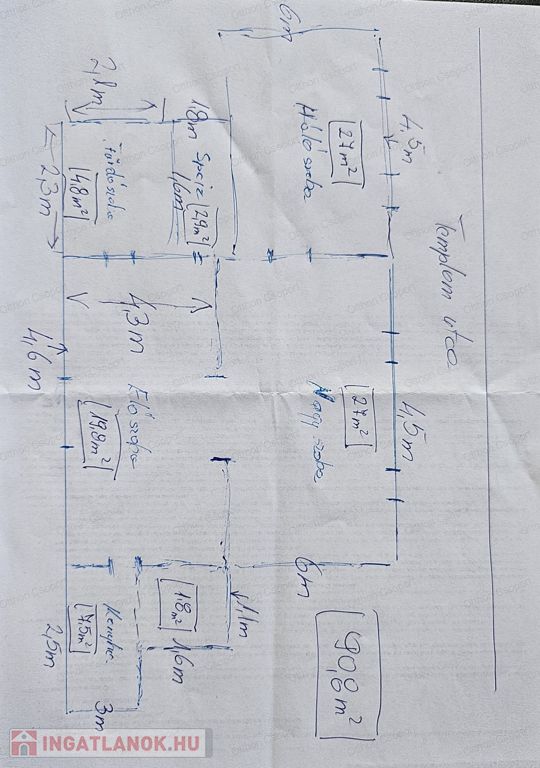 Templom utca
4,5m
4,5m
6m
Hálószoba
27m²
Nagyszoba
27m²
6m
90,6m²
2,1m
1,8m
Speiz
2,9m²
1,6m
Fürdőszoba
4,8m²
2,3m
4,3m
4,6m
Előszoba
19,8m²
1,1m
1,8m²
1,6m
Konyha
7,5m²
2,5m
3m
INGATLANOK.HU